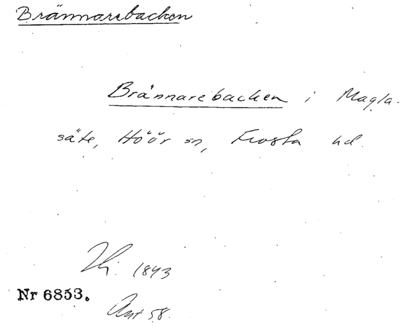 Brännarebacken
Brännarebacken i Magla-
säte, Höör sn, Frosta hd.
1893
Nr 6853.
Ant 58.